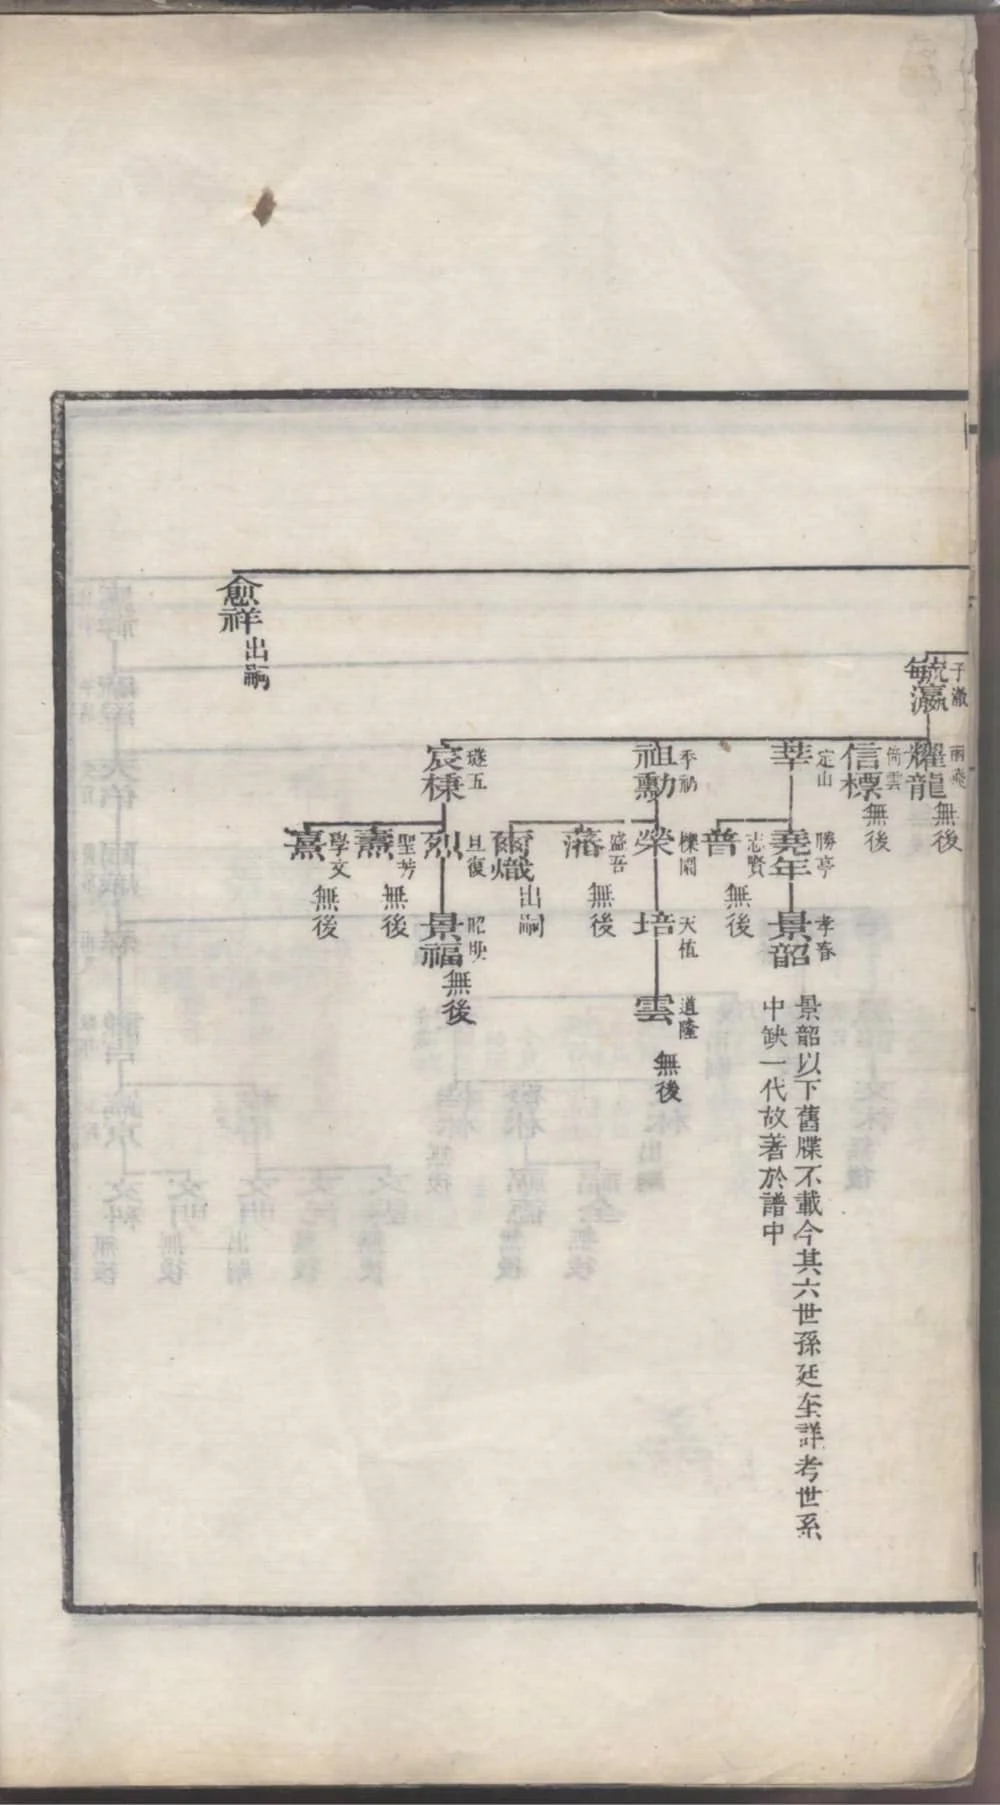 子澂
毓瀛
雨飛
耀龍
無後
倚雲
信標
無後
定山
莘
勝亭
堯年
孝春
景韶
景韶以下舊牒不載今其六世孫廷奎詳考世系
中缺一代故著於譜中
志賢
普
無後
季初
祖勳
榮
天植
培
道隆
雲
無後
盛吾
藩
無後
爾熾
出嗣
璲五
宸棟
旦復
烈
昭映
景福
無後
聖芳
燾
無後
學文
熹
無後
愈祥
出嗣